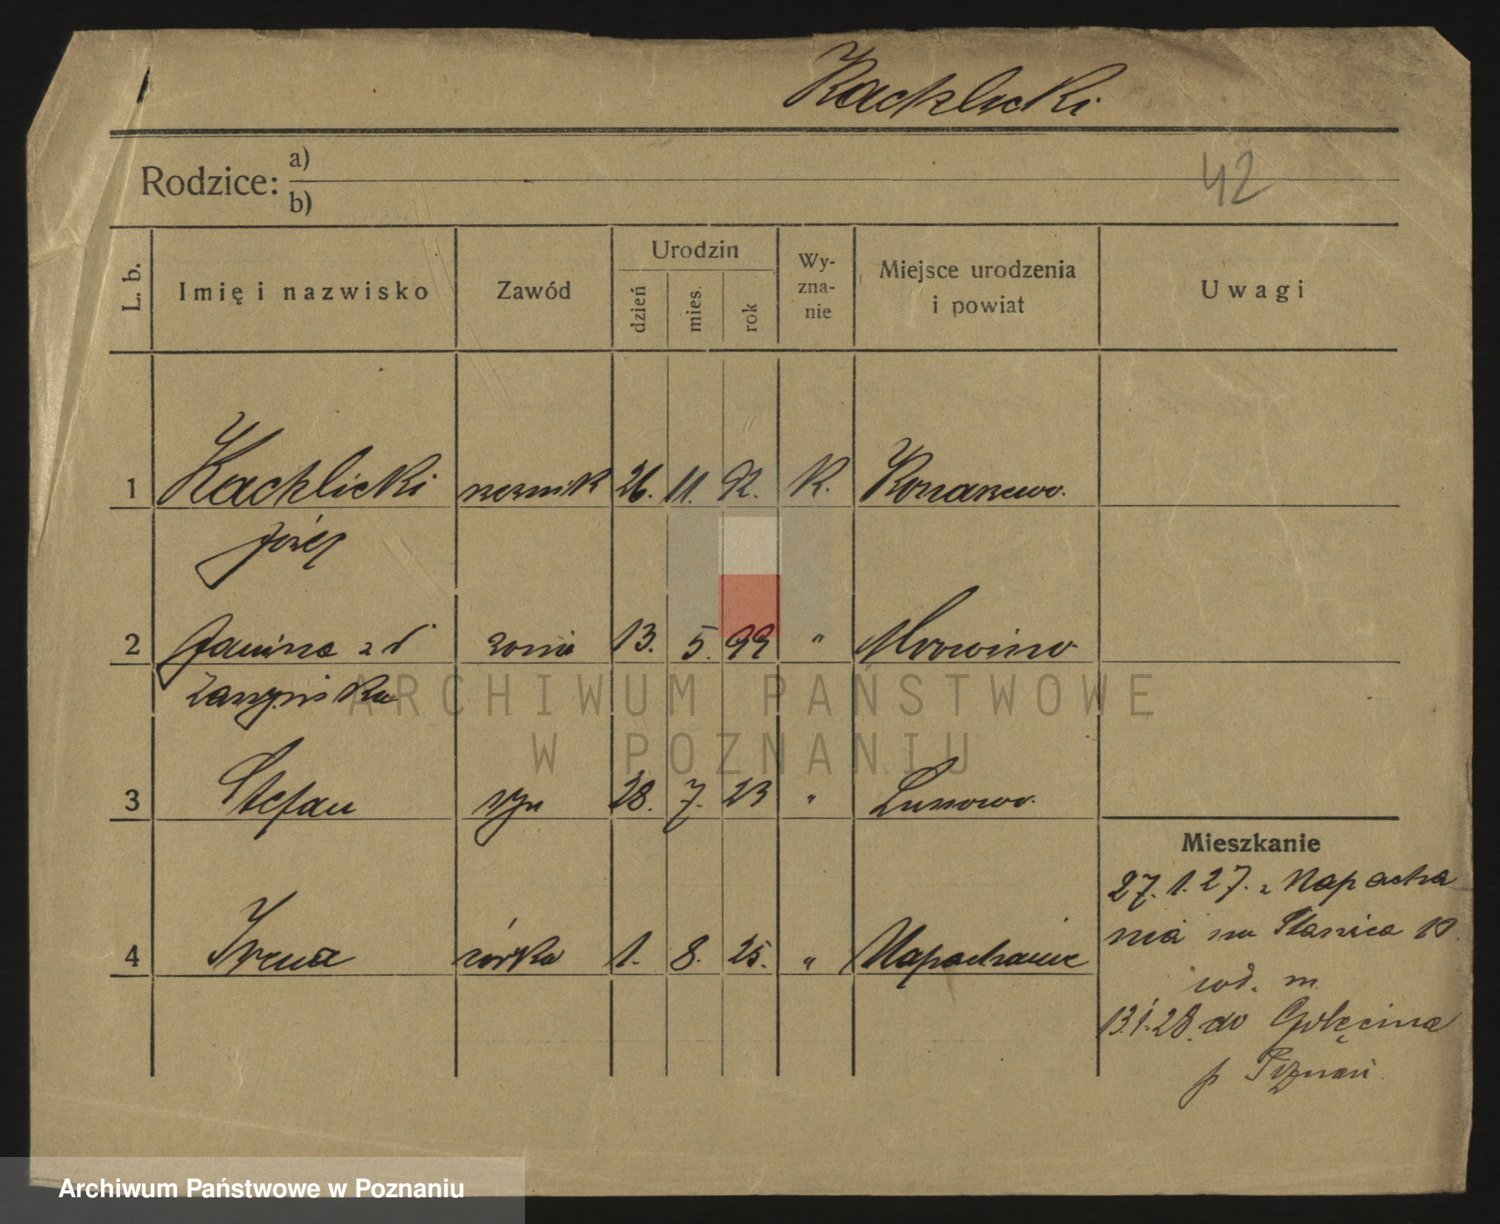 Kachlicki
Rodzice: a)
b)
42
L. b. Imię i nazwisko Zawód Urodzin dzień mies. rok Wy-zna-nie Miejsce urodzenia i powiat Uwagi
1 Kachlicki rzeźnik 26. 11. 92. K. Konarzewo.
Józef
2 Janina z d. żona 13. 5. 99 " Mrowino
3 Stefan syn 28. 7. 23 " Lusowo.
4 Irena córka 1. 8. 25. " Napachanie
Mieszkanie
27.1.27. z Napacha
nia na
rod. m.
13.1.28. do Golęcina
p. Poznań.
ARCHIWUM PAŃSTWOWE
W POZNANIU
Archiwum Państwowe w Poznaniu